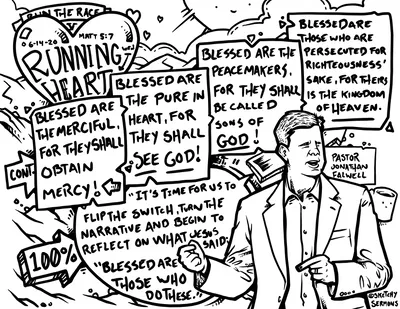 RUN THE RACE
6-14-20
MATT 5:7
RUNNING
HEART
BLESSED ARE
THE MERCIFUL,
FOR THEY SHALL
OBTAIN
MERCY!
BLESSED ARE
THE PURE IN
HEART, FOR
THEY SHALL
SEE GOD!
BLESSED ARE THE
PEACEMAKERS,
FOR THEY SHALL
BE CALLED
SONS OF
GOD!
BLESSED ARE
THOSE WHO ARE
PERSECUTED FOR
RIGHTEOUSNESS'
SAKE, FOR THEIRS
IS THE KINGDOM
OF HEAVEN.
CONT.
PASTOR
JONATHAN
FALWELL
"IT'S TIME FOR US TO
FLIP THE SWITCH, TURN THE
NARRATIVE AND BEGIN TO
REFLECT ON WHAT JESUS
SAID:
"BLESSED ARE
THOSE WHO
DO THESE."
100%
@SKETCHY
SERMONS